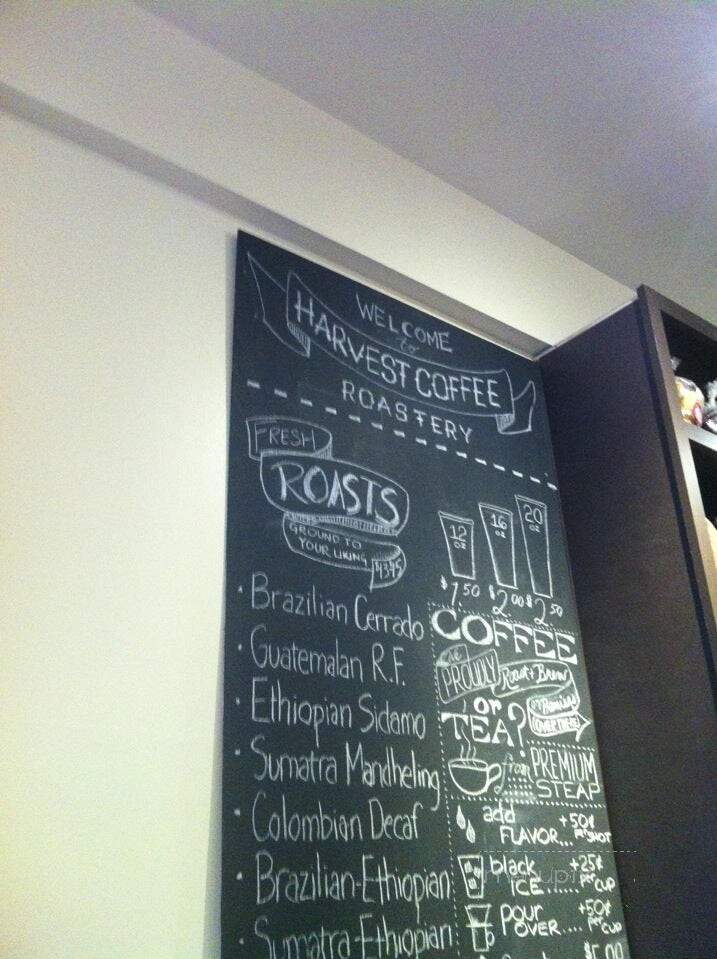 WELCOME
to
HARVEST COFFEE
ROASTERY
FRESH
ROASTS
GROUND TO
YOUR LIKING
• Brazilian Cerrado
• Guatemalan R.F.
• Ethiopian Sidamo
• Sumatra Mandheling
• Colombian Decaf
• Brazilian-Ethiopian
• Sumatra-Ethiopian
12 OZ
16 OZ
20 OZ
$1.50
$2.00
$2.50
COFFEE
We
PROUDLY
Roast & Brew
on Premises
(OVER THERE)
or
TEA?
from PREMIUM
STEAP
add
FLAVOR... +50¢ per SHOT
black
ICE...... +25¢ per CUP
pour
OVER.... +50¢ per CUP
$5.00